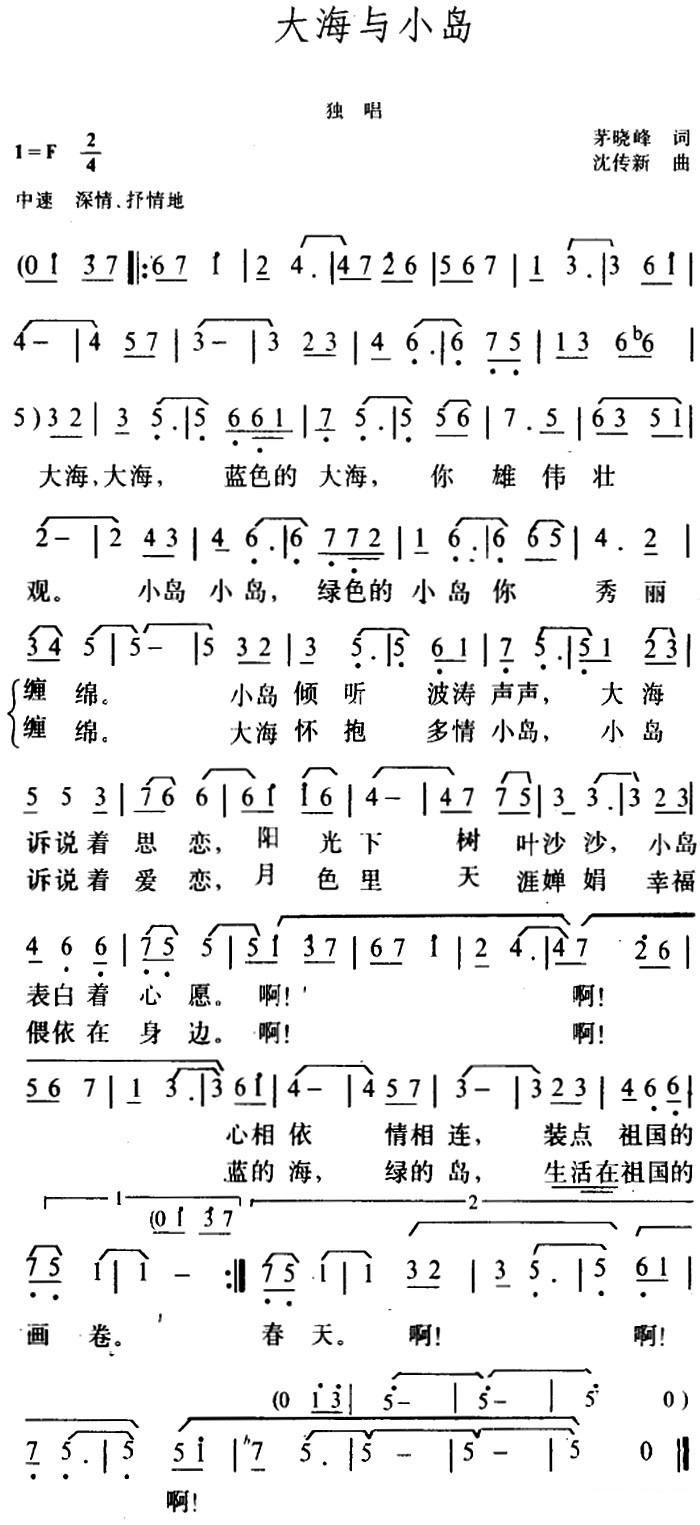 大海与小岛
独 唱
1=F 2/4
茅晓峰 词
沈传新 曲
中速 深情、抒情地
(0 1 3 7 ‖: 6 7 1 | 2 4. | 4 7 2 6 | 5 6 7 | 1 3. | 3 6 1 |
4 - | 4 5 7 | 3 - | 3 2 3 | 4 6. | 6 7 5 | 1 3 6 b6 |
5 ) 3 2 | 3 5. | 5 6 6 1 | 7 5. | 5 5 6 | 7. 5 | 6 3 5 1 |
大海,大海, 蓝色的 大海, 你 雄 伟 壮
2 - | 2 4 3 | 4 6. | 6 7 7 2 | 1 6. | 6 6 5 | 4. 2 |
观。 小岛 小岛, 绿色的 小岛你 秀丽
3 4 5 | 5 - | 5 3 2 | 3 5. | 5 6 1 | 7 5. | 5 2 3 |
缠 绵。 小岛 倾 听 波涛 声声, 大 海
缠 绵。 大海 怀 抱 多情 小岛, 小 岛
5 5 3 | 7 6 6 | 6 1 1 6 | 4 - | 4 7 7 5 | 3 3. | 3 2 3 |
诉说着 思 恋, 阳 光 下 树 叶沙 沙, 小岛
诉说着 爱 恋, 月 色 里 天 涯婵 娟 幸福
4 6 6 | 7 5 5 | 5 1 3 7 | 6 7 1 | 2 4. | 4 7 2 6 |
表白着 心 愿。 啊! 啊!
偎依在 身 边。 啊! 啊!
5 6 7 | 1 3. | 3 6 1 | 4 - | 4 5 7 | 3 - | 3 2 3 | 4 6 6 |
心相 依 情相 连, 装点 祖国的
蓝的 海, 绿的 岛, 生活在祖国的
1 2
(0 1 3 7
7 5 1 | 1 - :‖ 7 5 1 | 1 3 2 | 3 5. | 5 6 1 |
画 卷。 春 天。 啊! 啊!
(0 1 3 | 5 - | 5 - | 5 0 )
7 5. | 5 5 1 | 7 5. | 5 - | 5 0 ‖
啊!